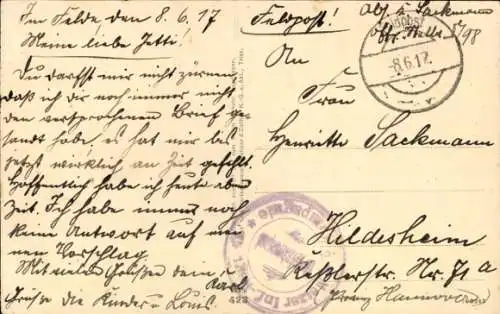 Im Felde den 8.6.17
Meine liebe Jetti!
Du darfst mir nicht zürnen,
daß ich dir noch immer nicht
den versprochenen Brief ge-
sandt habe. es hat mir bis
jetzt wirklich an Zeit gefehlt.
Hoffentlich habe ich heute abend
Zeit. Ich habe immer noch
keine Antwort auf mei-
nen Vorschlag.
Mit vielen Grüßen dein Karl
Grüße die Kinder u. Louis.
Feldpost!
Abs. Sackmann
8.6.17.
An
Frau
Henriette Sackmann
Hildesheim
Keßlerstr. Nr. 71 a
Prov. Hannover
422